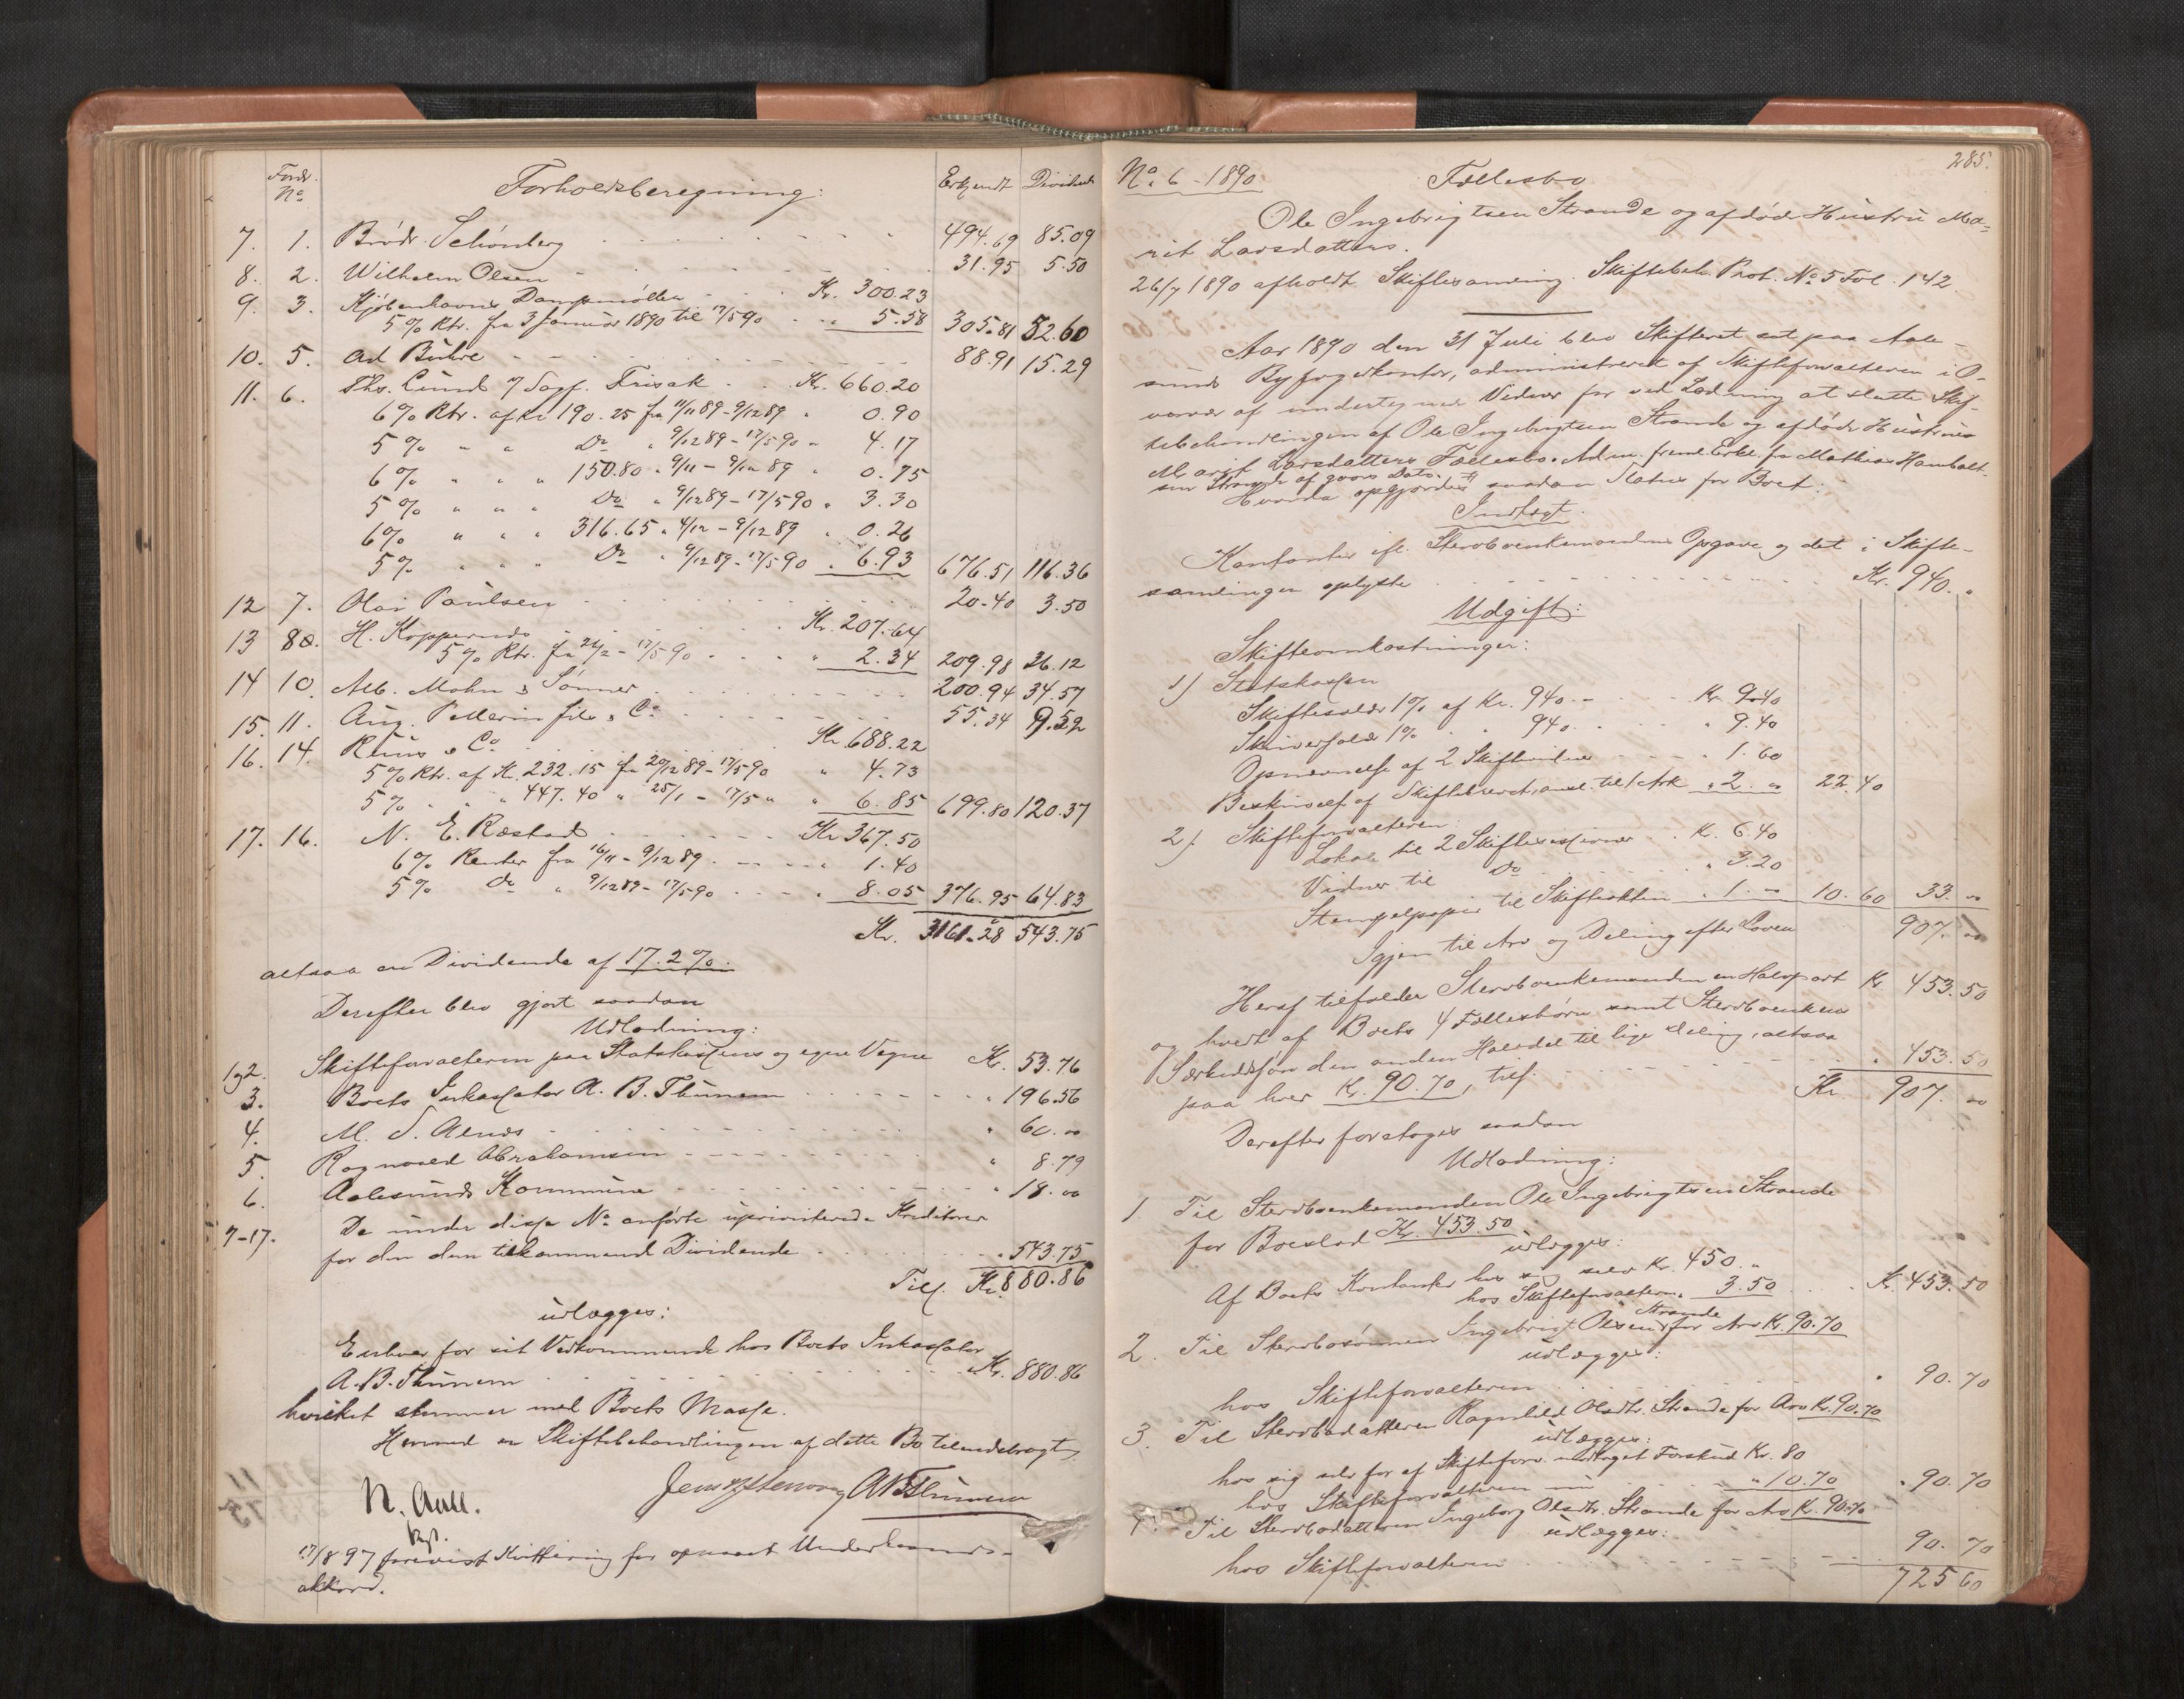 Fordr. No Forholdsberegning: Erkjendt Dividende
7. 1. Brødr. Schönberg 494.69 85.09
8. 2. Wilhelm Olsen 31.95 5.50
9. 3. Kjøbenhavns Dampmøller Kr. 300.23
5% Rtr. fra 3 Januar 1890 til 17/5 90 " 5.58 305.81 52.60
10. 5. Ad Buhre 88.91 15.29
11. 6. Ths. Lund Frisak Kr. 660.20
6% Rtr. af Kr 190.25 fra 11/11 89 - 9/12 89 " 0.90
5% " " Do " 9/12 89 - 17/5 90 " 4.17
6% " " " 150.80 " 9/11 - 9/12 89 " 0.75
5% " " " Do " 9/12 89 - 17/5 90 " 3.30
6% " " " 316.65 " 4/12 - 9/12 89 " 0.26
5% " " " Do " 9/12 89 - 17/5 90 " 6.93 676.51 116.36
12 7. Olai Paulsen 20.40 3.50
13 8a. H. Koppernæs Kr. 207.64
5% Rtr. fra 21/2 - 17/5 90 " 2.34 209.98 36.12
14 10. Alb. Mohn & Sønner 200.94 34.57
15. 11. Aug. Pellerin fils & Co 55.34 9.52
16. 14. & Co Kr 688.22
5% Rtr. af Kr. 232.15 fra 20/12 89 - 17/5 90 " 4.73
5% " " " 447.40 " 25/1 - 17/5 " " 6.85 699.80 120.37
17. 16. N. E. Ræstad Kr 367.50
6% Renter fra 16/11 - 9/12 89 " 1.40
5% Do " 9/12 89 - 17/5 90 " 8.05 376.95 64.83
Kr. 3161.28 543.75
altsaa en Dividende af 17.2%.
Derefter blev gjort saadan
Udlodning:
1 og 2. Skifteforvalteren paa Statskassens og egne Vegne Kr. 53.76
3. Boets Inkassator A. B. Thunem " 196.56
4. M. S. Aenes " 60.00
5. Ragnvald Abrahamsen " 8.79
6. Aalesunds Kommune " 18.00
7-17. De under disse No anførte uprioriterede Kreditorer
for den dem tilkommende Dividende " 543.75
Tils. Kr. 880.86
udlægges:
Enhver for sit Vedkommende hos Boets Inkassator
A. B. Thunem Kr. 880.86
hvilket stemmer med Boets Masse.
Hermed er Skiftebehandlingen af dette Bo tilendebragt
N. Aall. A B Thunem
kst.
17/8 97 forevist Kvittering for opnaaet Underhaands-
akkord.
285.
No. 6 - 1890. Fællesbo
Ole Ingebrigtsen Strande og afdøde Hustru Ma-
rit Larsdatters.
26/7 1890 afholdt Skiftesamling. Skiftebeh. Prot. No 5 Fol. 142.
Aar 1890 den 31 Juli blev Skifteret sat paa Aale-
sunds Byfogedkontor, administreret af Skifteforvalteren i O-
vervær af undertegnede Vidner for ved Lodning at slutte Skif-
tebehandlingen af Ole Ingebrigtsen Strande og afdøde Hustrues
Marit Larsdatters Fællesbo. Adm. freml. Erkl. fra Mathias Hambalt-
sen Strande af gaars Dato.
Hvorda opgjordes saadan Status for Boet:
Indtægt.
Kontanter efl. Stervboenkemandens Opgave og det i Skifte-
samlingen oplyste Kr. 940. "
Udgift:
Skifteomkostninger:
1) Statskassen
Skiftesalær 1% af Kr. 940.- Kr. 9.40
Skriversalær 1% " " 940. " 9.40
Opnævnelse af 2 Skiftevidner " 1.60
Beskrivelse af Skiftebrevet, ansl. til 1 Ark " 2. " 22.40
2). Skifteforvalteren
Lokale til 2 Skiftesessioner Kr. 6.40
Vidner til Do " 3.20
Stempelpapir til Skifteakten " 1.00 10.60 33.00
Igjen til Arv og Deling efter Loven 907.00
Heraf tilfalder Stervboenkemanden en Halvpart Kr. 453.50
og hvert af Boets 4 Fællesbørn samt Stervboenkens
Særkuldsøn den anden Halvdel til lige Deling, altsaa
paa hver Kr. 90.70, tils. " 453.50
Kr 907.00
Derefter foretoges saadan
Udlodning:
1. Til Stervboenkemanden Ole Ingebrigtsen Strande
for Boeslod Kr. 453.50
udlægges:
Af Boets Kontanter hos sig selv Kr. 450. "
hos Skifteforvalteren " 3.50 Kr. 453.50
2. Til Stervbosønnen Ingebrigt Olsen Strande for Arv Kr. 90.70
udlægges:
hos Skifteforvalteren " 90.70
3. Til Stervbodatteren Ragnhild Olsdtr. Strande for Arv Kr. 90.70
udlægges:
hos sig selv for af Skifteforv. modtaget Forskud Kr. 80
hos Skifteforvalteren nu " 10.70 " 90.70
4. Til Stervbodatteren Ingeborg Olsdtr. Strande for Arv Kr. 90.70
udlægges:
hos Skifteforvalteren 90.70
725 60